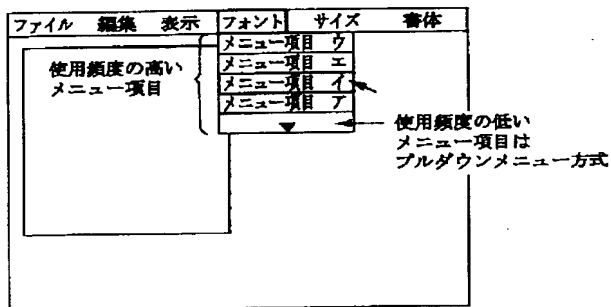 ファイル 編集 表示 フォント サイズ 書体
メニュー項目 ウ
メニュー項目 エ
メニュー項目 イ
メニュー項目 ア
使用頻度の高い
メニュー項目
使用頻度の低い
メニュー項目は
プルダウンメニュー方式